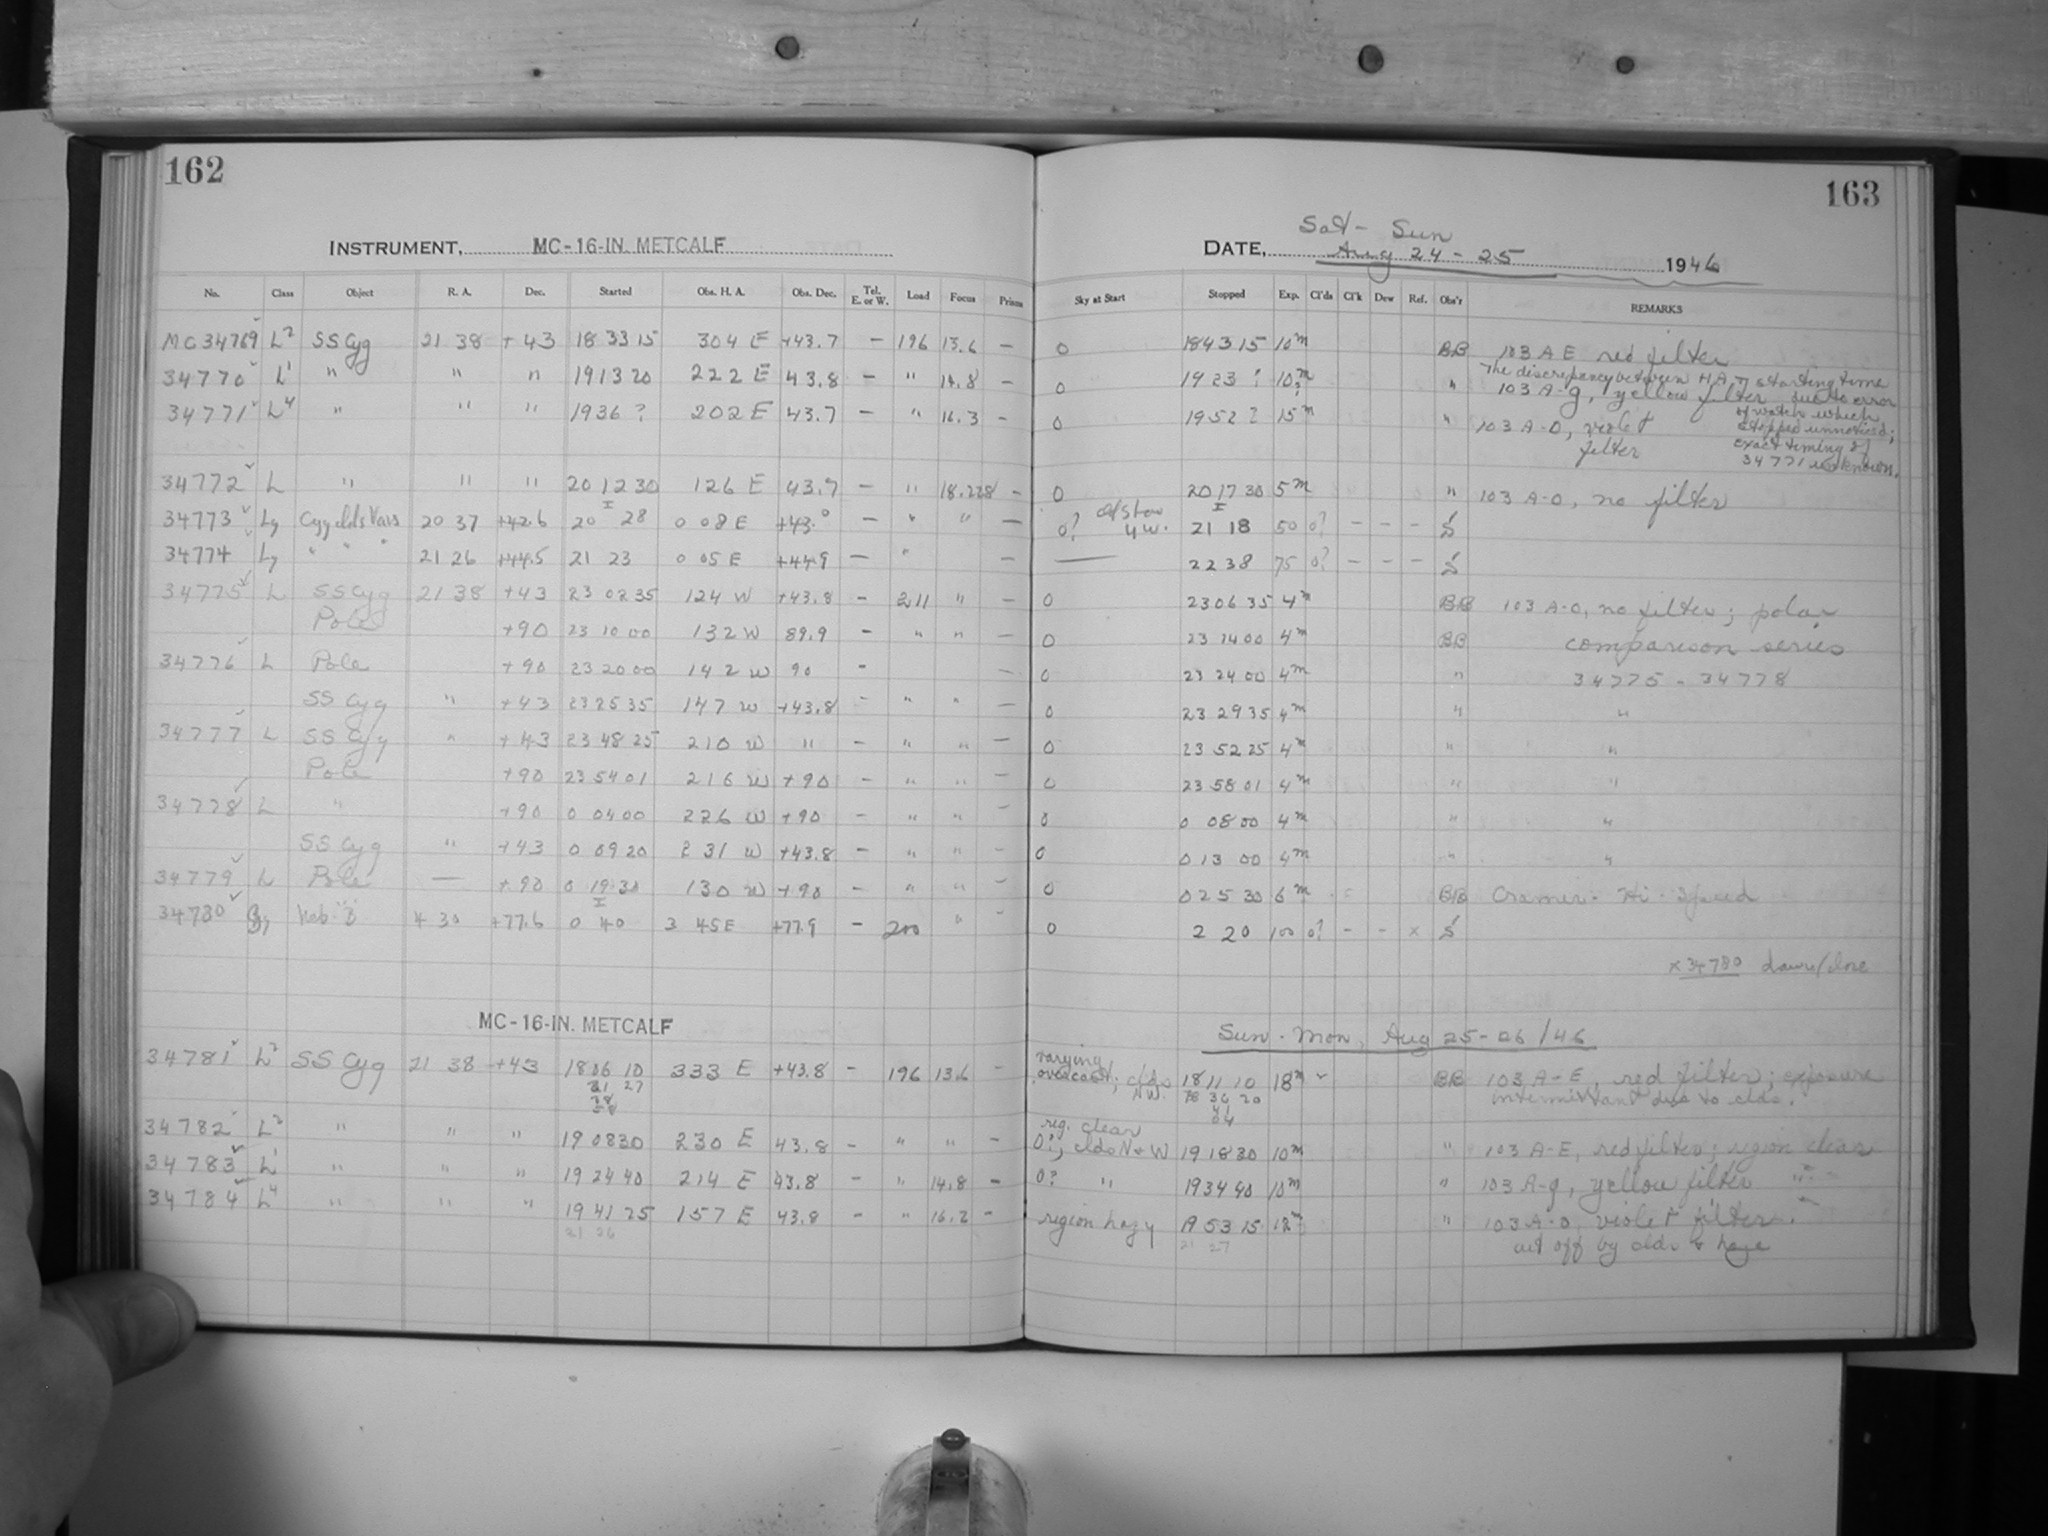 162
163
INSTRUMENT, MC-16-IN. METCALF
Sat - Sun
DATE, Aug 24 - 25 1946
No. Class Object R. A. Dec. Started Obs. H. A. Obs. Dec. Tel. E. or W. Load Focus Prism Sky at Start Stopped Exp. Cl'ds Cl'k Dew Ref. Obs'r REMARKS
MC 34769 L2 SS Cyg 21 38 + 43 18 33 15 304 E +43.7 - 196 13.6 - 0 18 43 15 10m BB 103 A E red filter
34770 L1 " " " 19 13 20 222 E 43.8 - " 14.8 - 0 19 23 ? 10m? " 103 A-g, yellow filter
The discrepancy between H.A. & starting time due to error
of watch which
stopped unnoticed;
exact timing of
34771 unknown.
34771 L4 " " " 1936 ? 202 E 43.7 - " 16.3 - 0 19 52 ? 15m " 103 A-O, violet
filter
34772 L " " " 20 12 30 126 E 43.7 - " - 0 20 17 30 5m " 103 A-O, no filter
34773 Ly Vars 20 37 +42.6 20 28 0 08 E +43.0 - " " - 0? 21 18 50 0? - - - S
34774 Ly " " " 21 26 +44.5 21 23 0 05 E +44.9 - " - — 22 38 75 0? - - - S
34775 L SS Cyg 21 38 +43 23 02 35 124 W +43.8 - 211 " - 0 23 06 35 4m BB 103 A-O, no filter; polar
Pole +90 23 10 00 132 W 89.9 - " " - 0 23 14 00 4m BB comparison series
34776 L Pole +90 23 20 00 142 W 90 - - 0 23 24 00 4m " 34775 - 34778
SS Cyg " +43 23 25 35 147 W +43.8 - " " - 0 23 29 35 4m " "
34777 L SS Cyg " +43 23 48 25 210 W " - " " - 0 23 52 25 4m " "
Pole +90 23 54 01 216 W +90 - " " - 0 23 58 01 4m " "
34778 L " +90 0 04 00 226 W +90 - " " - 0 0 08 00 4m " "
SS Cyg " +43 0 09 20 2 31 W +43.8 - " " - 0 0 13 00 4m " "
34779 L Pole — +90 0 19 30 130 W +90 - " " - 0 0 25 30 6m BB Cramer - Hi - Speed
34780 4 30 +77.6 0 40 3 45 E +77.9 - 200 " 0 2 20 100 0? - - x S
x 34780 dawn/close
MC-16-IN. METCALF
Sun - Mon, Aug 25-26/46
34781 L2 SS Cyg 21 38 +43 18 06 10 333 E +43.8 - 196 13.6 - varying overcast; clds NW. 18 11 10 18m BB 103 A-E, red filter, exposure
intermittant due to clds.
34782 L2 " " " 19 08 30 230 E 43.8 - " " - reg. clear 0?, clds N & W 19 18 30 10m " 103 A-E, red filter; region clear
34783 L1 " " " 19 24 40 214 E 43.8 - " 14.8 - 0? " 19 34 40 10m " 103 A-g, yellow filter "
34784 L4 " " " 19 41 25 157 E 43.8 - " 16.2 - region hazy 19 53 15 12m " 103 A-O, violet filter.
21 26 21 27 cut off by clds & haze